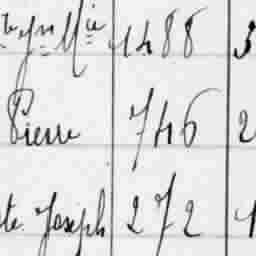 te Jn Mie 1488 3
Pierre 746 2
te Joseph 272 1